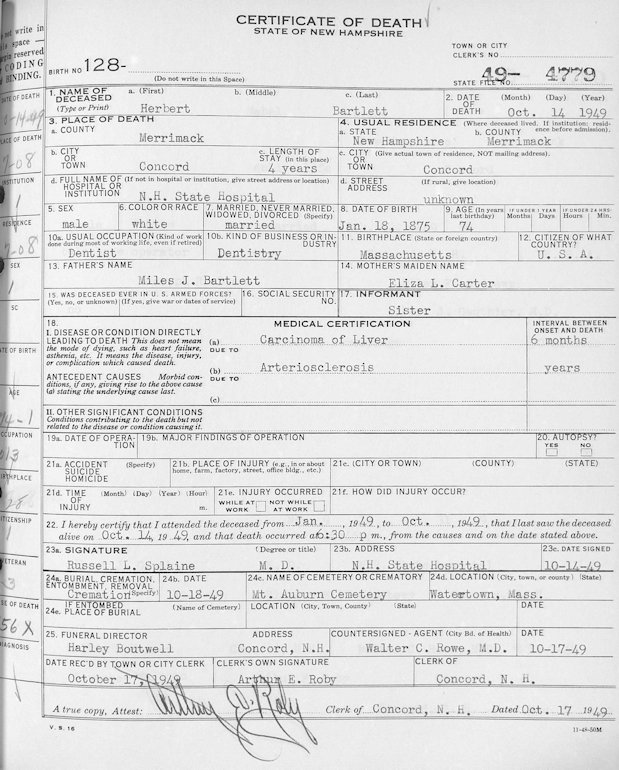 CERTIFICATE OF DEATH
STATE OF NEW HAMPSHIRE
not write in
space —
reserved
CODING
BINDING.
TOWN OR CITY
CLERK'S NO.
BIRTH NO 128-
(Do not write in this Space)
STATE FILE NO. 49- 4779
1. NAME OF DECEASED (Type or Print) a. (First) b. (Middle) c. (Last)
Herbert Bartlett
2. DATE OF DEATH (Month) (Day) (Year)
Oct. 14 1949
3. PLACE OF DEATH
a. COUNTY
Merrimack
4. USUAL RESIDENCE (Where deceased lived. If institution: residence before admission).
a. STATE b. COUNTY
New Hampshire Merrimack
b. CITY OR TOWN
Concord
c. LENGTH OF STAY (in this place)
4 years
c. CITY (Give actual town of residence, NOT mailing address). OR TOWN
Concord
d. FULL NAME OF (If not in hospital or institution, give street address or location) HOSPITAL OR INSTITUTION
N.H. State Hospital
d. STREET ADDRESS (If rural, give location)
unknown
5. SEX
male
6. COLOR OR RACE
white
7. MARRIED, NEVER MARRIED, WIDOWED, DIVORCED (Specify)
married
8. DATE OF BIRTH
Jan. 18, 1875
9. AGE (In years last birthday)
74
IF UNDER 1 YEAR
Months Days
IF UNDER 24 HRS.
Hours Min.
10a. USUAL OCCUPATION (Kind of work done during most of working life, even if retired)
Dentist
10b. KIND OF BUSINESS OR INDUSTRY
Dentistry
11. BIRTHPLACE (State or foreign country)
Massachusetts
12. CITIZEN OF WHAT COUNTRY?
U. S. A.
13. FATHER'S NAME
Miles J. Bartlett
14. MOTHER'S MAIDEN NAME
Eliza L. Carter
15. WAS DECEASED EVER IN U. S. ARMED FORCES? (Yes, no, or unknown) (If yes, give war or dates of service)
16. SOCIAL SECURITY NO.
17. INFORMANT
Sister
18. MEDICAL CERTIFICATION
INTERVAL BETWEEN ONSET AND DEATH
I. DISEASE OR CONDITION DIRECTLY LEADING TO DEATH This does not mean the mode of dying, such as heart failure, asthenia, etc. It means the disease, injury, or complication which caused death.
(a) Carcinoma of Liver 6 months
DUE TO
ANTECEDENT CAUSES Morbid conditions, if any, giving rise to the above cause (a) stating the underlying cause last.
(b) Arteriosclerosis years
DUE TO
(c)
II. OTHER SIGNIFICANT CONDITIONS
Conditions contributing to the death but not related to the disease or condition causing it.
19a. DATE OF OPERATION
19b. MAJOR FINDINGS OF OPERATION
20. AUTOPSY?
YES NO
21a. ACCIDENT (Specify) SUICIDE HOMICIDE
21b. PLACE OF INJURY (e.g., in or about home, farm, factory, street, office bldg., etc.)
21c. (CITY OR TOWN) (COUNTY) (STATE)
21d. TIME OF INJURY (Month) (Day) (Year) (Hour) m.
21e. INJURY OCCURRED
WHILE AT WORK NOT WHILE AT WORK
21f. HOW DID INJURY OCCUR?
22. I hereby certify that I attended the deceased from Jan. , 1949, to Oct. , 1949, that I last saw the deceased
alive on Oct. 14, 1949, and that death occurred at 6:30 p m., from the causes and on the date stated above.
23a. SIGNATURE (Degree or title)
Russell L. Splaine M. D.
23b. ADDRESS
N.H. State Hospital
23c. DATE SIGNED
10-14-49
24a. BURIAL, CREMATION, ENTOMBMENT, REMOVAL (Specify)
Cremation
24b. DATE
10-18-49
24c. NAME OF CEMETERY OR CREMATORY
Mt. Auburn Cemetery
24d. LOCATION (City, town, or county) (State)
Watertown, Mass.
24e. IF ENTOMBED PLACE OF BURIAL (Name of Cemetery)
LOCATION (City, Town, County) (State)
DATE
25. FUNERAL DIRECTOR ADDRESS
Harley Boutwell Concord, N.H.
COUNTERSIGNED - AGENT (City Bd. of Health)
Walter C. Rowe, M.D.
DATE
10-17-49
DATE REC'D BY TOWN OR CITY CLERK
October 17, 1949
CLERK'S OWN SIGNATURE
Arthur E. Roby
CLERK OF
Concord, N. H.
A true copy, Attest: Arthur E. Roby Clerk of Concord, N. H. Dated Oct. 17 1949
V. S. 16
11-48-50M
DATE OF DEATH
PLACE OF DEATH
INSTITUTION
1
RESIDENCE
SEX
1
SC
DATE OF BIRTH
AGE
OCCUPATION
BIRTHPLACE
CITIZENSHIP
1
VETERAN
3
CAUSE OF DEATH
56X
DIAGNOSIS